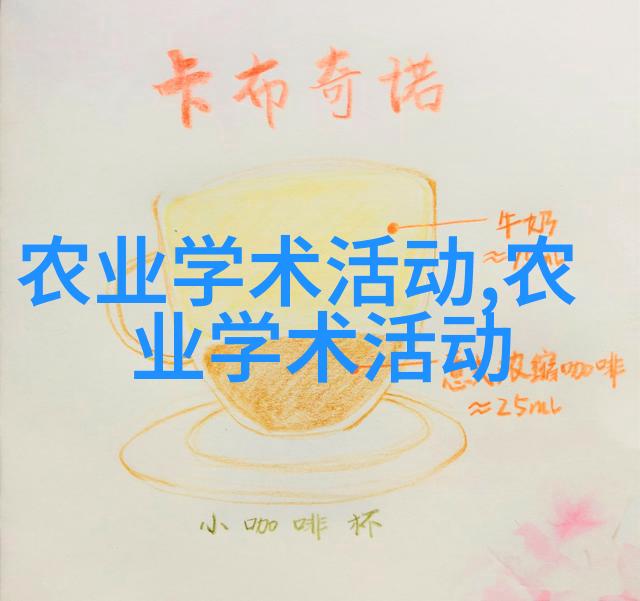 卡布奇诺
牛奶
农业学术活动,农
业学术活动
浓缩咖啡
≈25mL
小咖啡杯